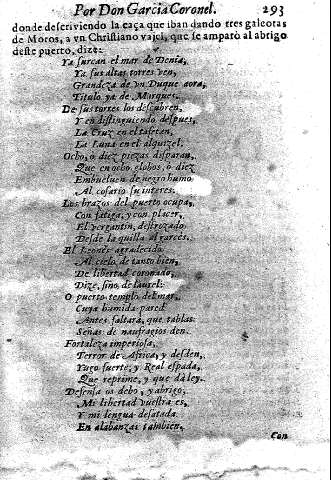 Por Don Garcia Coronel. 293
donde descriviendo la caça que iban dando tres galeotas
de Moros, a vn Christiano vajel, que se amparò al abrigo
deste puerto, dize:
Ya surcan el mar de Denia,
Ya sus altas torres ven,
Grandeza de vn Duque aora,
Titulo ya de Marques.
De sus torres los descubren,
Y en distinguiendo despues,
La Cruz en el tafetan,
La Luna en el alquizel:
Ocho, ò diez piezas disparan,
Que en ocho globos, ò diez
Embueluen de negro humo
Al cosario su interes.
Los brazos del puerto ocupa,
Con fatiga, y con placer,
El vergantin, destrozado
Desde la quilla al garces.
El Leones agradecido
Al cielo, de tanto bien,
De libertad coronado,
Dize, sino, de laurel:
O puerto, templo del mar,
Cuya humida pared
Antes faltarà, que tablas
Señas de naufragios den.
Fortaleza imperiosa,
Terror de Africa, y desden,
Yugo fuerte, y Real espada,
Que reprime, y que dà ley.
Defensa os debo, y abrigo,
Mi libertad vuestra es,
Y mi lengua desatada
En alabanzas tambien.
Con